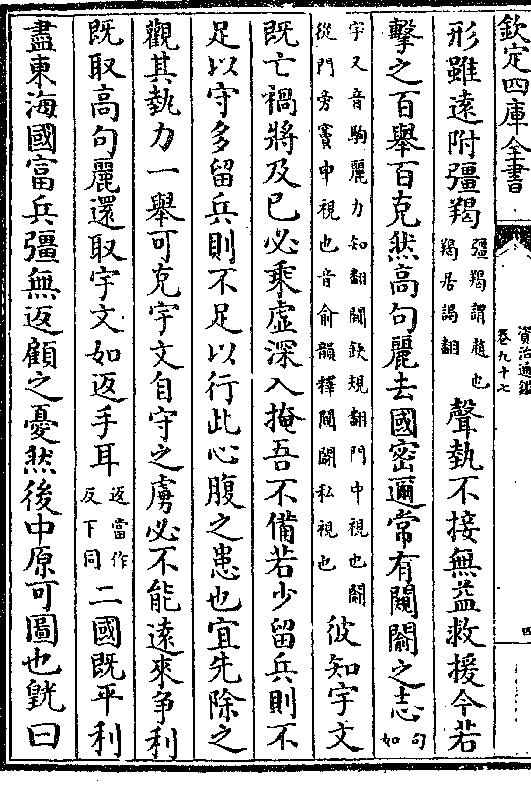 欽定四庫全書
資治通鑑
卷九十七
四
形雖遠附彊羯彊羯謂趙也羯居謁翻聲埶不接無益救援今若
擊之百舉百克然高句麗去國密邇常有闚𨵦之志句如
字又音駒麗力知翻闚缺規翻門中視也𨵦
從門旁竇中視也音俞韻釋闚𨵦私視也彼知宇文
既亡禍將及已必乘虛深入掩吾不備若少留兵則不
足以守多留兵則不足以行此心腹之患也宜先除之
觀其埶力一舉可克宇文自守之虜必不能遠來爭利
既取高句麗還取宇文如返手耳返當作反下同二國既平利
盡東海國富兵彊無返顧之憂然後中原可圖也皝曰